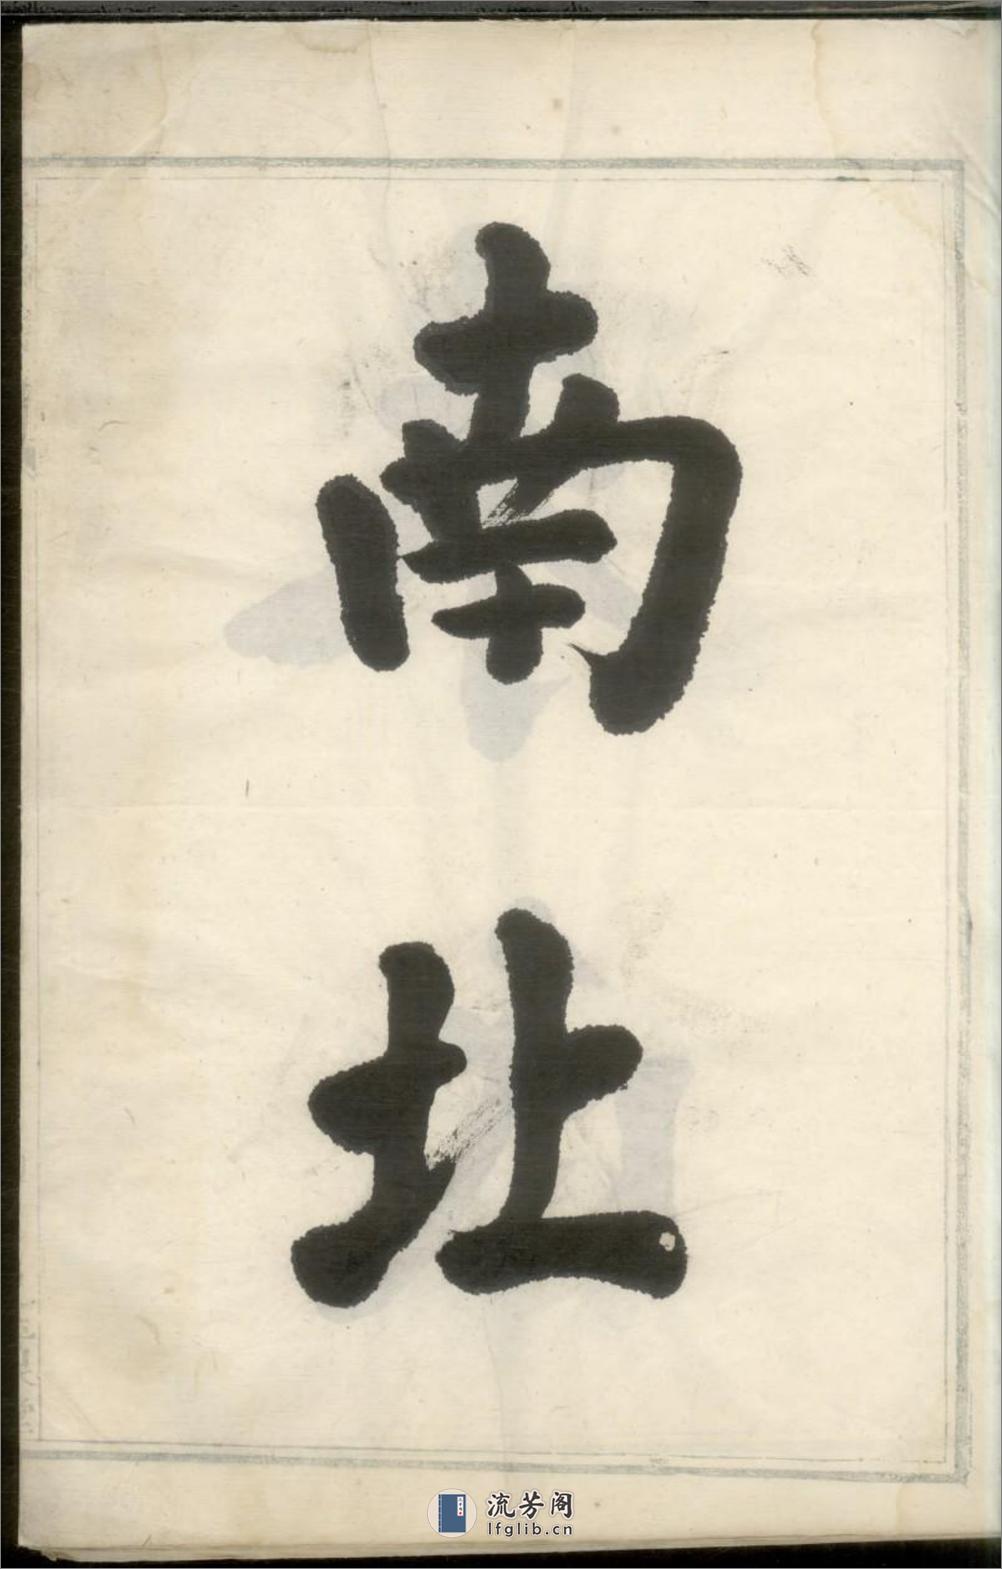 南
北
流芳阁
lfglib.cn